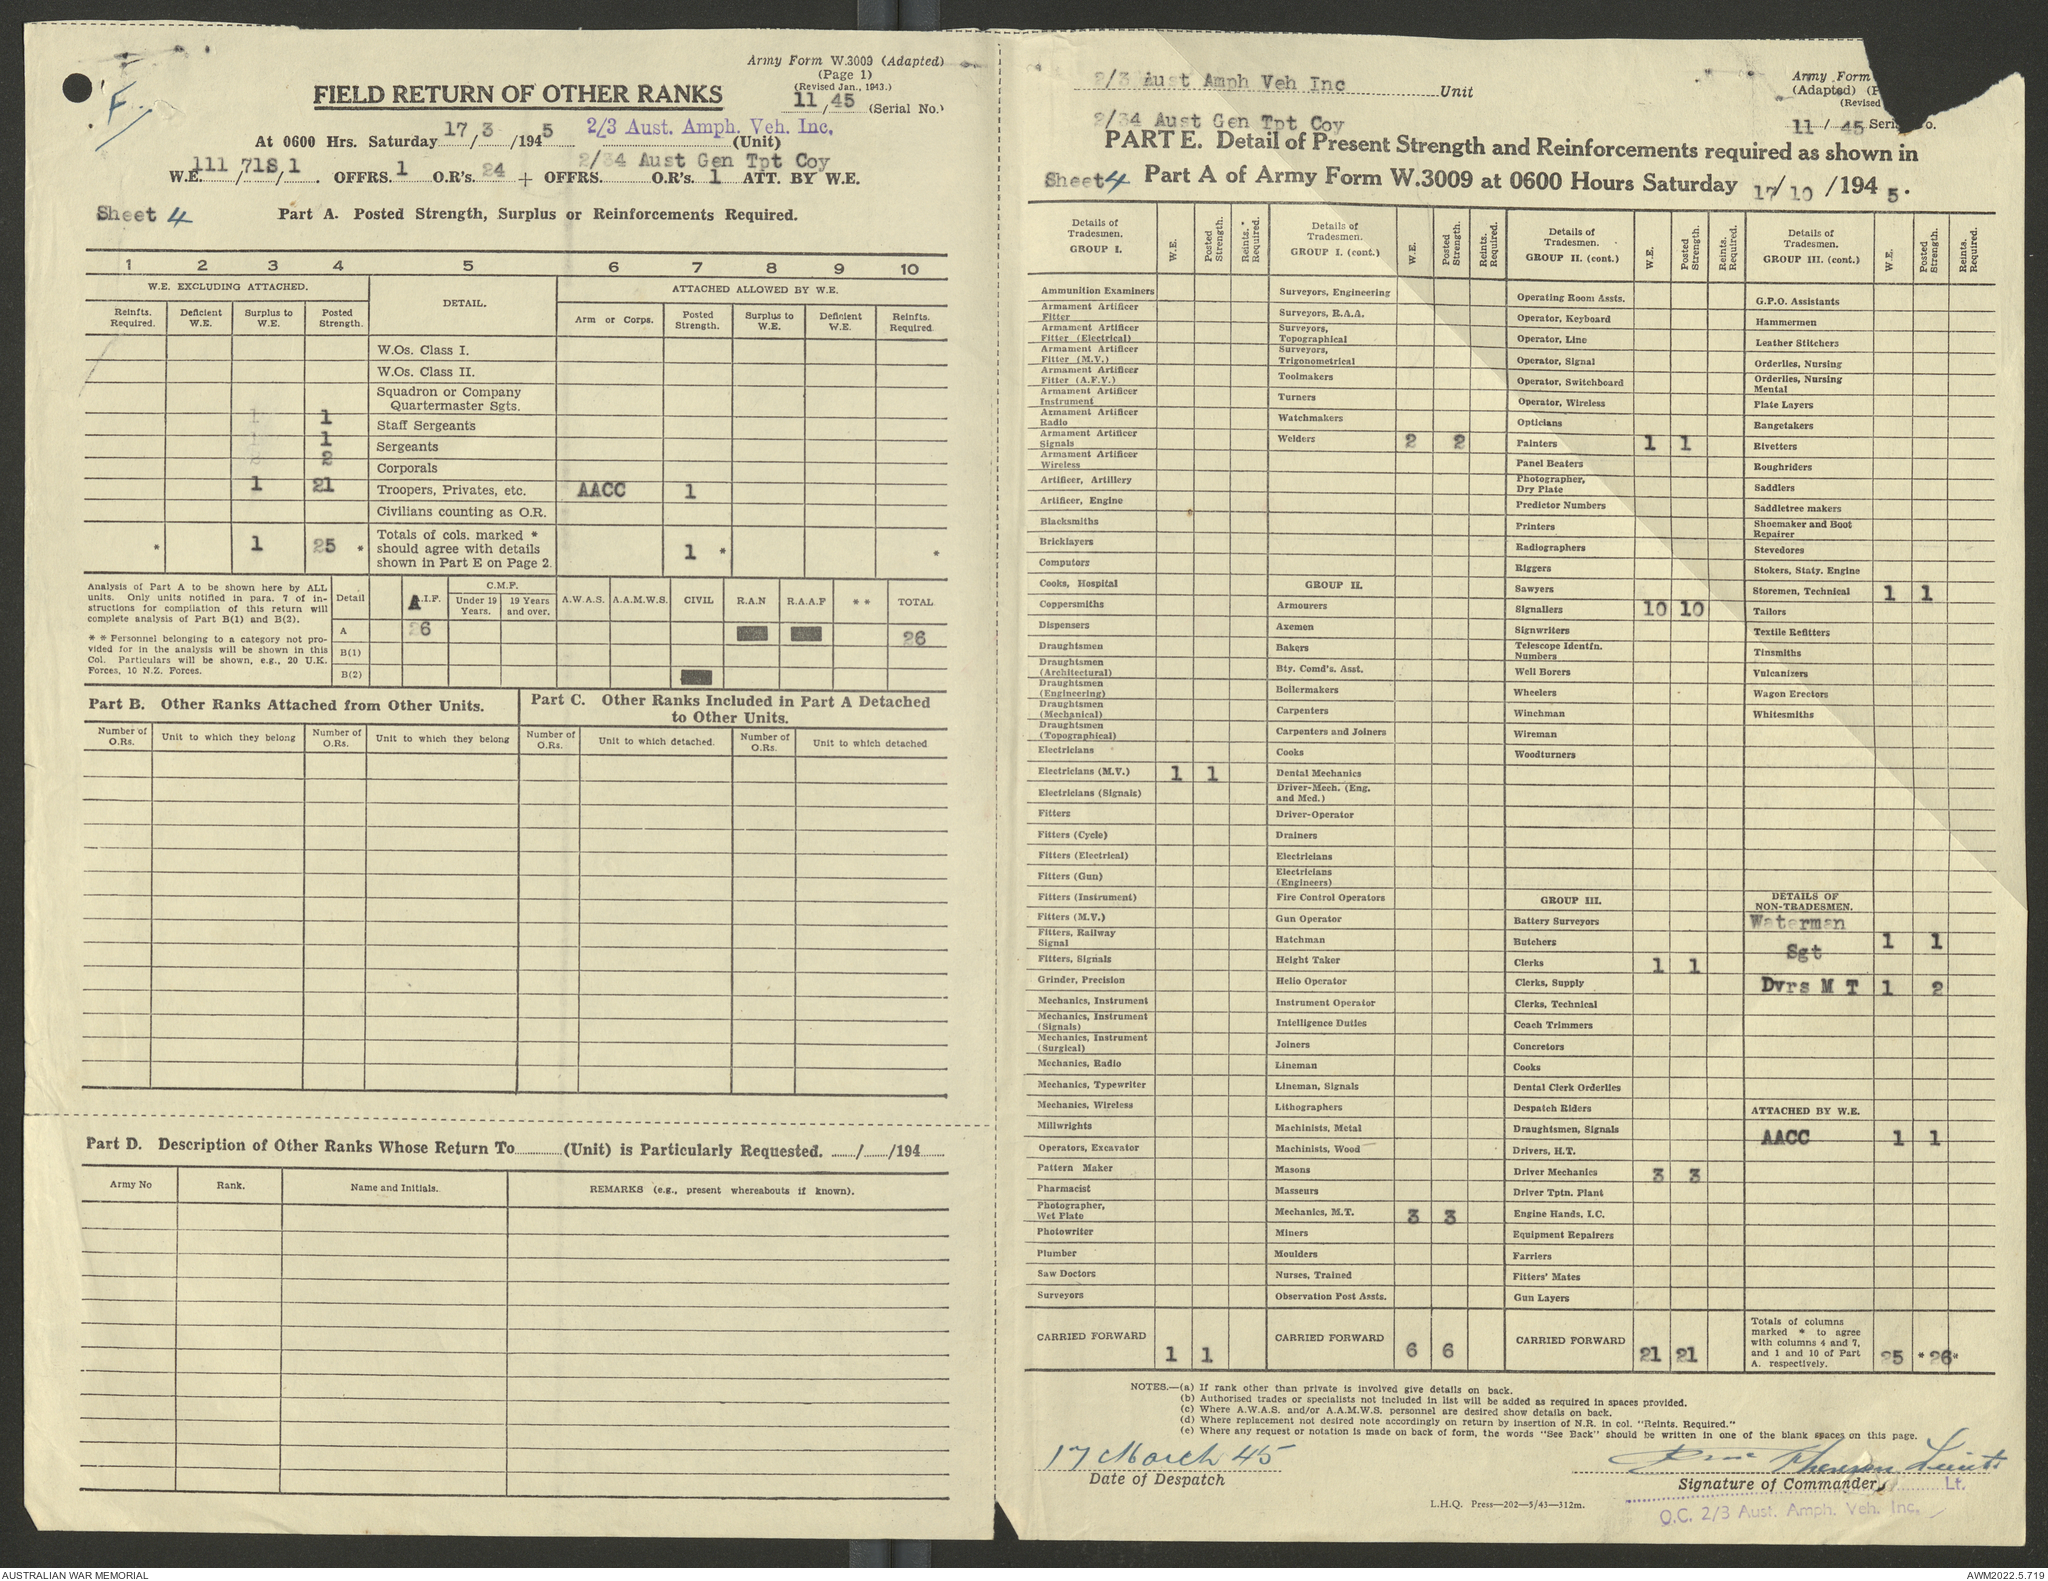 Army Form W.3009 (Adapted)
(Page 1)
(Revised Jan., 1943.)
11/45 (Serial No.)
F/
FIELD RETURN OF OTHER RANKS
At 0600 Hrs. Saturday 17/3/1945 2/3 Aust. Amph. Veh. Inc. (Unit)
2/34 Aust Gen Tpt Coy
W.E. 111/71S/1. OFFRS. 1 O.R's. 24 + OFFRS. O.R's. 1 ATT. BY W.E.
Sheet 4 Part A. Posted Strength, Surplus or Reinforcements Required.
1 2 3 4 5 6 7 8 9 10
W.E. EXCLUDING ATTACHED. DETAIL. ATTACHED ALLOWED BY W.E.
Reinfts. Required. Deficient W.E. Surplus to W.E. Posted Strength. Arm or Corps. Posted Strength. Surplus to W.E. Deficient W.E. Reinfts. Required.
W.Os. Class I.
W.Os. Class II.
Squadron or Company
Quartermaster Sgts.
1 1 Staff Sergeants
1 1 Sergeants
2 2 Corporals
1 21 Troopers, Privates, etc. AACC 1
Civilians counting as O.R.
* 1 25 * Totals of cols. marked * should agree with details shown in Part E on Page 2. 1 * *
Analysis of Part A to be shown here by ALL
units. Only units notified in para. 7 of in-
structions for compilation of this return will
complete analysis of Part B(1) and B(2).
* * Personnel belonging to a category not pro-
vided for in the analysis will be shown in this
Col. Particulars will be shown, e.g., 20 U.K.
Forces, 10 N.Z. Forces.
Detail A.I.F. C.M.F. Under 19 Years. 19 Years and over. A.W.A.S. A.A.M.W.S. CIVIL R.A.N R.A.A.F * * TOTAL
A 26 26
B(1)
B(2)
Part B. Other Ranks Attached from Other Units.
Part C. Other Ranks Included in Part A Detached
to Other Units.
Number of O.Rs. Unit to which they belong Number of O.Rs. Unit to which they belong Number of O.Rs. Unit to which detached. Number of O.Rs. Unit to which detached
Part D. Description of Other Ranks Whose Return To (Unit) is Particularly Requested. / /194
Army No Rank. Name and Initials. REMARKS (e.g., present whereabouts if known).
2/3 Aust Amph Veh Inc Unit
Army Form
(Adapted) (P
(Revised
11 / 45 Seri o.
2/34 Aust Gen Tpt Coy
PART E. Detail of Present Strength and Reinforcements required as shown in
Sheet 4 Part A of Army Form W.3009 at 0600 Hours Saturday 17/10/1945.
Details of Tradesmen. GROUP I. W.E. Posted Strength. Reints. Required.*
Ammunition Examiners
Armament Artificer Fitter
Armament Artificer Fitter (Electrical)
Armament Artificer Fitter (M.V.)
Armament Artificer Fitter (A.F.V.)
Armament Artificer Instrument
Armament Artificer Radio
Armament Artificer Signals
Armament Artificer Wireless
Artificer, Artillery
Artificer, Engine
Blacksmiths
Bricklayers
Computors
Cooks, Hospital
Coppersmiths
Dispensers
Draughtsmen
Draughtsmen (Architectural)
Draughtsmen (Engineering)
Draughtsmen (Mechanical)
Draughtsmen (Topographical)
Electricians
Electricians (M.V.) 1 1
Electricians (Signals)
Fitters
Fitters (Cycle)
Fitters (Electrical)
Fitters (Gun)
Fitters (Instrument)
Fitters (M.V.)
Fitters, Railway Signal
Fitters, Signals
Grinder, Precision
Mechanics, Instrument
Mechanics, Instrument (Signals)
Mechanics, Instrument (Surgical)
Mechanics, Radio
Mechanics, Typewriter
Mechanics, Wireless
Millwrights
Operators, Excavator
Pattern Maker
Pharmacist
Photographer, Wet Plate
Photowriter
Plumber
Saw Doctors
Surveyors
CARRIED FORWARD 1 1
Details of Tradesmen. GROUP I. (cont.) W.E. Posted Strength. Reints. Required.
Surveyors, Engineering
Surveyors, R.A.A.
Surveyors, Topographical
Surveyors, Trigonometrical
Toolmakers
Turners
Watchmakers
Welders 2 2
GROUP II.
Armourers
Axemen
Bakers
Bty. Comd's. Asst.
Boilermakers
Carpenters
Carpenters and Joiners
Cooks
Dental Mechanics
Driver-Mech. (Eng. and Med.)
Driver-Operator
Drainers
Electricians
Electricians (Engineers)
Fire Control Operators
Gun Operator
Hatchman
Height Taker
Helio Operator
Instrument Operator
Intelligence Duties
Joiners
Lineman
Lineman, Signals
Lithographers
Machinists, Metal
Machinists, Wood
Masons
Masseurs
Mechanics, M.T. 3 3
Miners
Moulders
Nurses, Trained
Observation Post Assts.
CARRIED FORWARD 6 6
Details of Tradesmen. GROUP II. (cont.) W.E. Posted Strength. Reints. Required.
Operating Room Assts.
Operator, Keyboard
Operator, Line
Operator, Signal
Operator, Switchboard
Operator, Wireless
Opticians
Painters 1 1
Panel Beaters
Photographer, Dry Plate
Predictor Numbers
Printers
Radiographers
Riggers
Sawyers
Signallers 10 10
Signwriters
Telescope Identfn. Numbers
Well Borers
Wheelers
Winchman
Wireman
Woodturners
GROUP III.
Battery Surveyors
Butchers
Clerks 1 1
Clerks, Supply
Clerks, Technical
Coach Trimmers
Concretors
Cooks
Dental Clerk Orderlies
Despatch Riders
Draughtsmen, Signals
Drivers, H.T.
Driver Mechanics 3 3
Driver Tptn. Plant
Engine Hands, I.C.
Equipment Repairers
Farriers
Fitters' Mates
Gun Layers
CARRIED FORWARD 21 21
Details of Tradesmen. GROUP III. (cont.) W.E. Posted Strength. Reints. Required.
G.P.O. Assistants
Hammermen
Leather Stitchers
Orderlies, Nursing
Orderlies, Nursing Mental
Plate Layers
Rangetakers
Rivetters
Roughriders
Saddlers
Saddletree makers
Shoemaker and Boot Repairer
Stevedores
Stokers, Staty. Engine
Storemen, Technical 1 1
Tailors
Textile Refitters
Tinsmiths
Vulcanizers
Wagon Erectors
Whitesmiths
DETAILS OF NON-TRADESMEN.
Waterman
Sgt 1 1
Dvrs M T 1 2
ATTACHED BY W.E.
AACC 1 1
Totals of columns marked * to agree with columns 4 and 7, and 1 and 10 of Part A. respectively. 25 *26*
NOTES.—(a) If rank other than private is involved give details on back.
(b) Authorised trades or specialists not included in list will be added as required in spaces provided.
(c) Where A.W.A.S. and/or A.A.M.W.S. personnel are desired show details on back.
(d) Where replacement not desired note accordingly on return by insertion of N.R. in col. "Reints. Required."
(e) Where any request or notation is made on back of form, the words "See Back" should be written in one of the blank spaces on this page.
17 March 45
Date of Despatch
Signature of Commander, Lt.
L.H.Q. Press—202—5/43—312m.
O.C. 2/3 Aust. Amph. Veh. Inc.
AUSTRALIAN WAR MEMORIAL
AWM2022.5.719